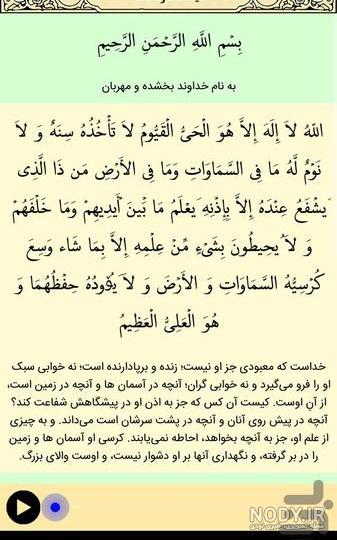 بِسْمِ اللَّهِ الرَّحْمَنِ الرَّحِيمِ
به نام خداوند بخشده و مهربان
اللّهُ لاَ إِلَهَ إِلاَّ هُوَ الْحَيُّ الْقَيُّومُ لاَ تَأْخُذُهُ سِنَةٌ وَ لاَ
نَوْمٌ لَّهُ مَا فِی السَّمَاوَاتِ وَمَا فِی الأَرْضِ مَن ذَا الَّذِی
يَشْفَعُ عِنْدَهُ إِلاَّ بِإِذْنِهِ يَعْلَمُ مَا بَيْنَ أَيْدِيهِمْ وَمَا خَلْفَهُمْ
وَ لاَ يُحِيطُونَ بِشَيْءٍ مِّنْ عِلْمِهِ إِلاَّ بِمَا شَاء وَسِعَ
كُرْسِيُّهُ السَّمَاوَاتِ وَ الأَرْضَ وَ لاَ يَؤُودُهُ حِفْظُهُمَا وَ
هُوَ الْعَلِیُّ الْعَظِيمُ
خداست که معبودی جز او نیست؛ زنده و برپادارنده است؛ نه خوابی سبک
او را فرو می‌گیرد و نه خوابی گران؛ آنچه در آسمان ها و آنچه در زمین است،
از آنِ اوست. کیست آن کس که جز به اذن او در پیشگاهش شفاعت کند؟
آنچه در پیش روی آنان و آنچه در پشت سرشان است می‌داند. و به چیزی
از علم او، جز به آنچه بخواهد، احاطه نمی‌یابند. کرسی او آسمان ها و زمین
را در بر گرفته، و نگهداری آنها بر او دشوار نیست، و اوست والای بزرگ.
NODY.IR